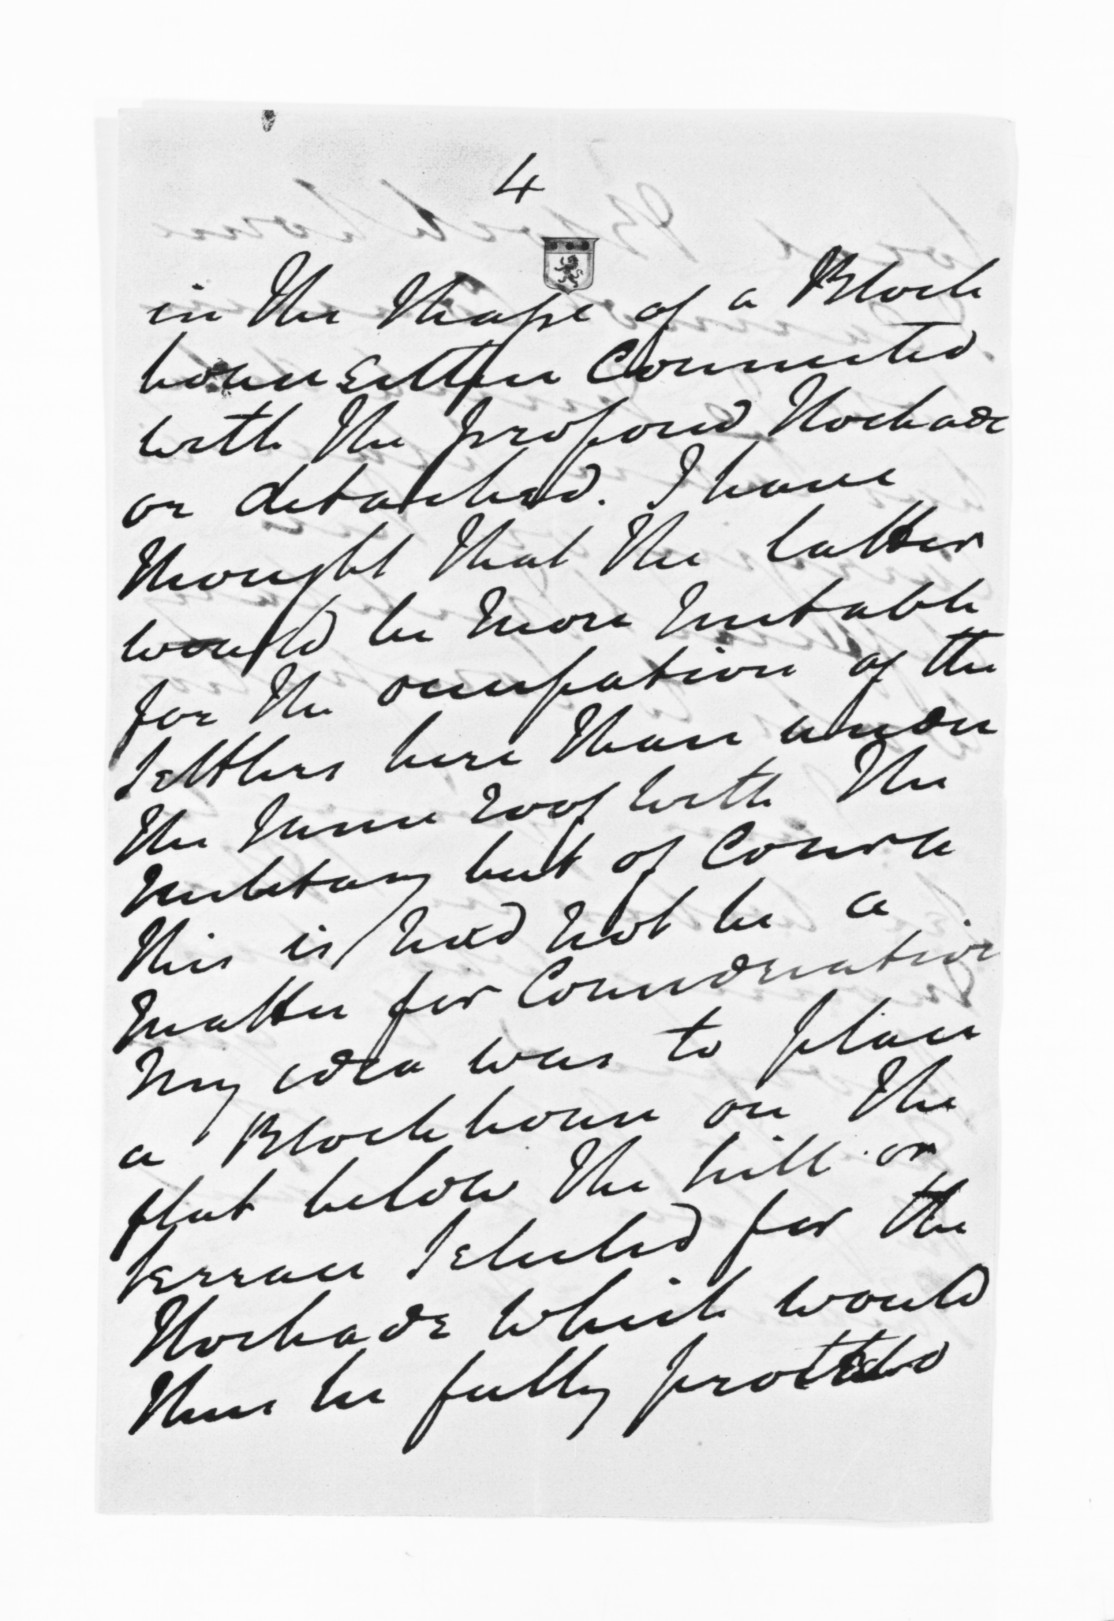 4
in the shape of a Block
house either connected
with the proposed Stockade
or detached. I have
thought that the latter
would be more suitable
for the occupation of the
settlers here than under
the same roof with the
military but of course
this is / need not be a
matter for consideration
My idea was to place
a Blockhouse on the
flat below the hill or
terrace selected for the
Stockade which would
thus be fully protected